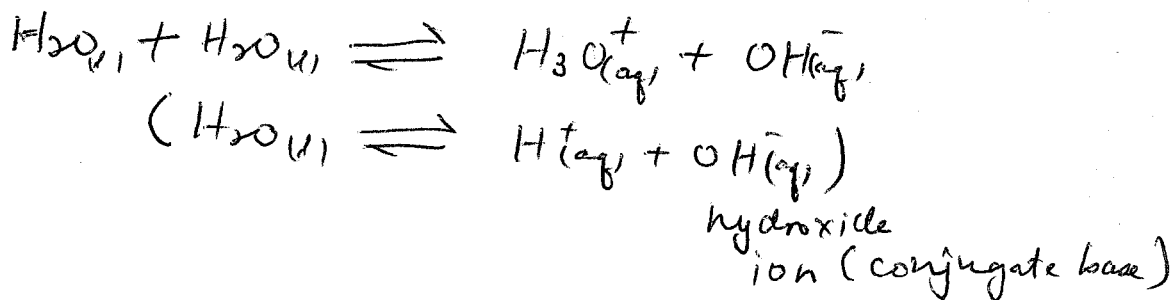 H₂O(l) + H₂O(l) ⇌ H₃O⁺(aq) + OH⁻(aq)
(H₂O(l) ⇌ H⁺(aq) + OH⁻(aq))
hydroxide
ion (conjugate base)